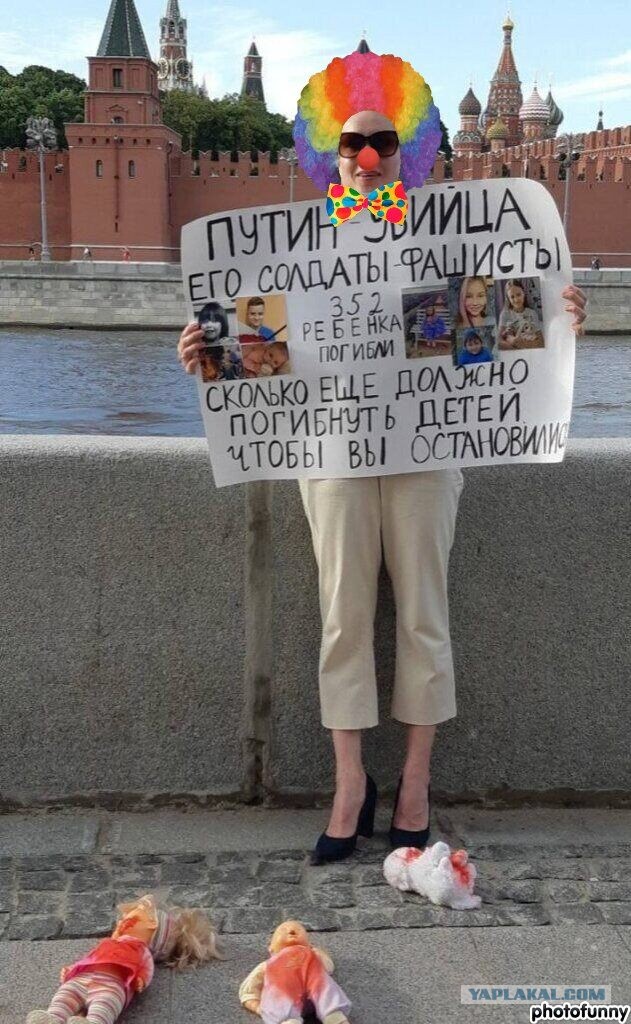 ПУТИН-УБИЙЦА
ЕГО СОЛДАТЫ-ФАШИСТЫ
352
РЕБЁНКА
ПОГИБЛИ
СКОЛЬКО ЕЩЕ ДОЛЖНО
ПОГИБНУТЬ ДЕТЕЙ
ЧТОБЫ ВЫ ОСТАНОВИЛИСЬ
YAPLAKAL.COM
photofunny